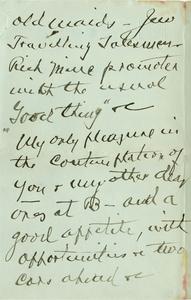 old maids – Jew
Travelling Salesmen –
Rich Mine promoter
with the usual
"Good thing" &c
My only pleasure in
the contemplation of
you & my other dear
ones at B – and a
good appetite, with
opportunities in two
cars ahead &c